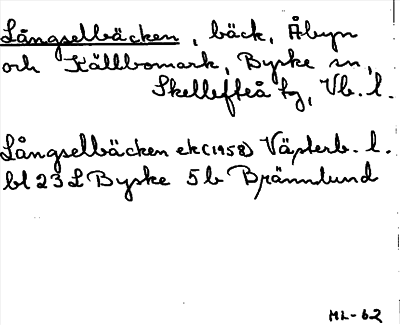 Långselbäcken, bäck, Åbyn
och Källbomark, Byske sn,
Skellefteå tg, Vb. l.
Långselbäcken ek (1958) Västerb. l.
bl 23 L Byske 5b Brännlund
ML-62